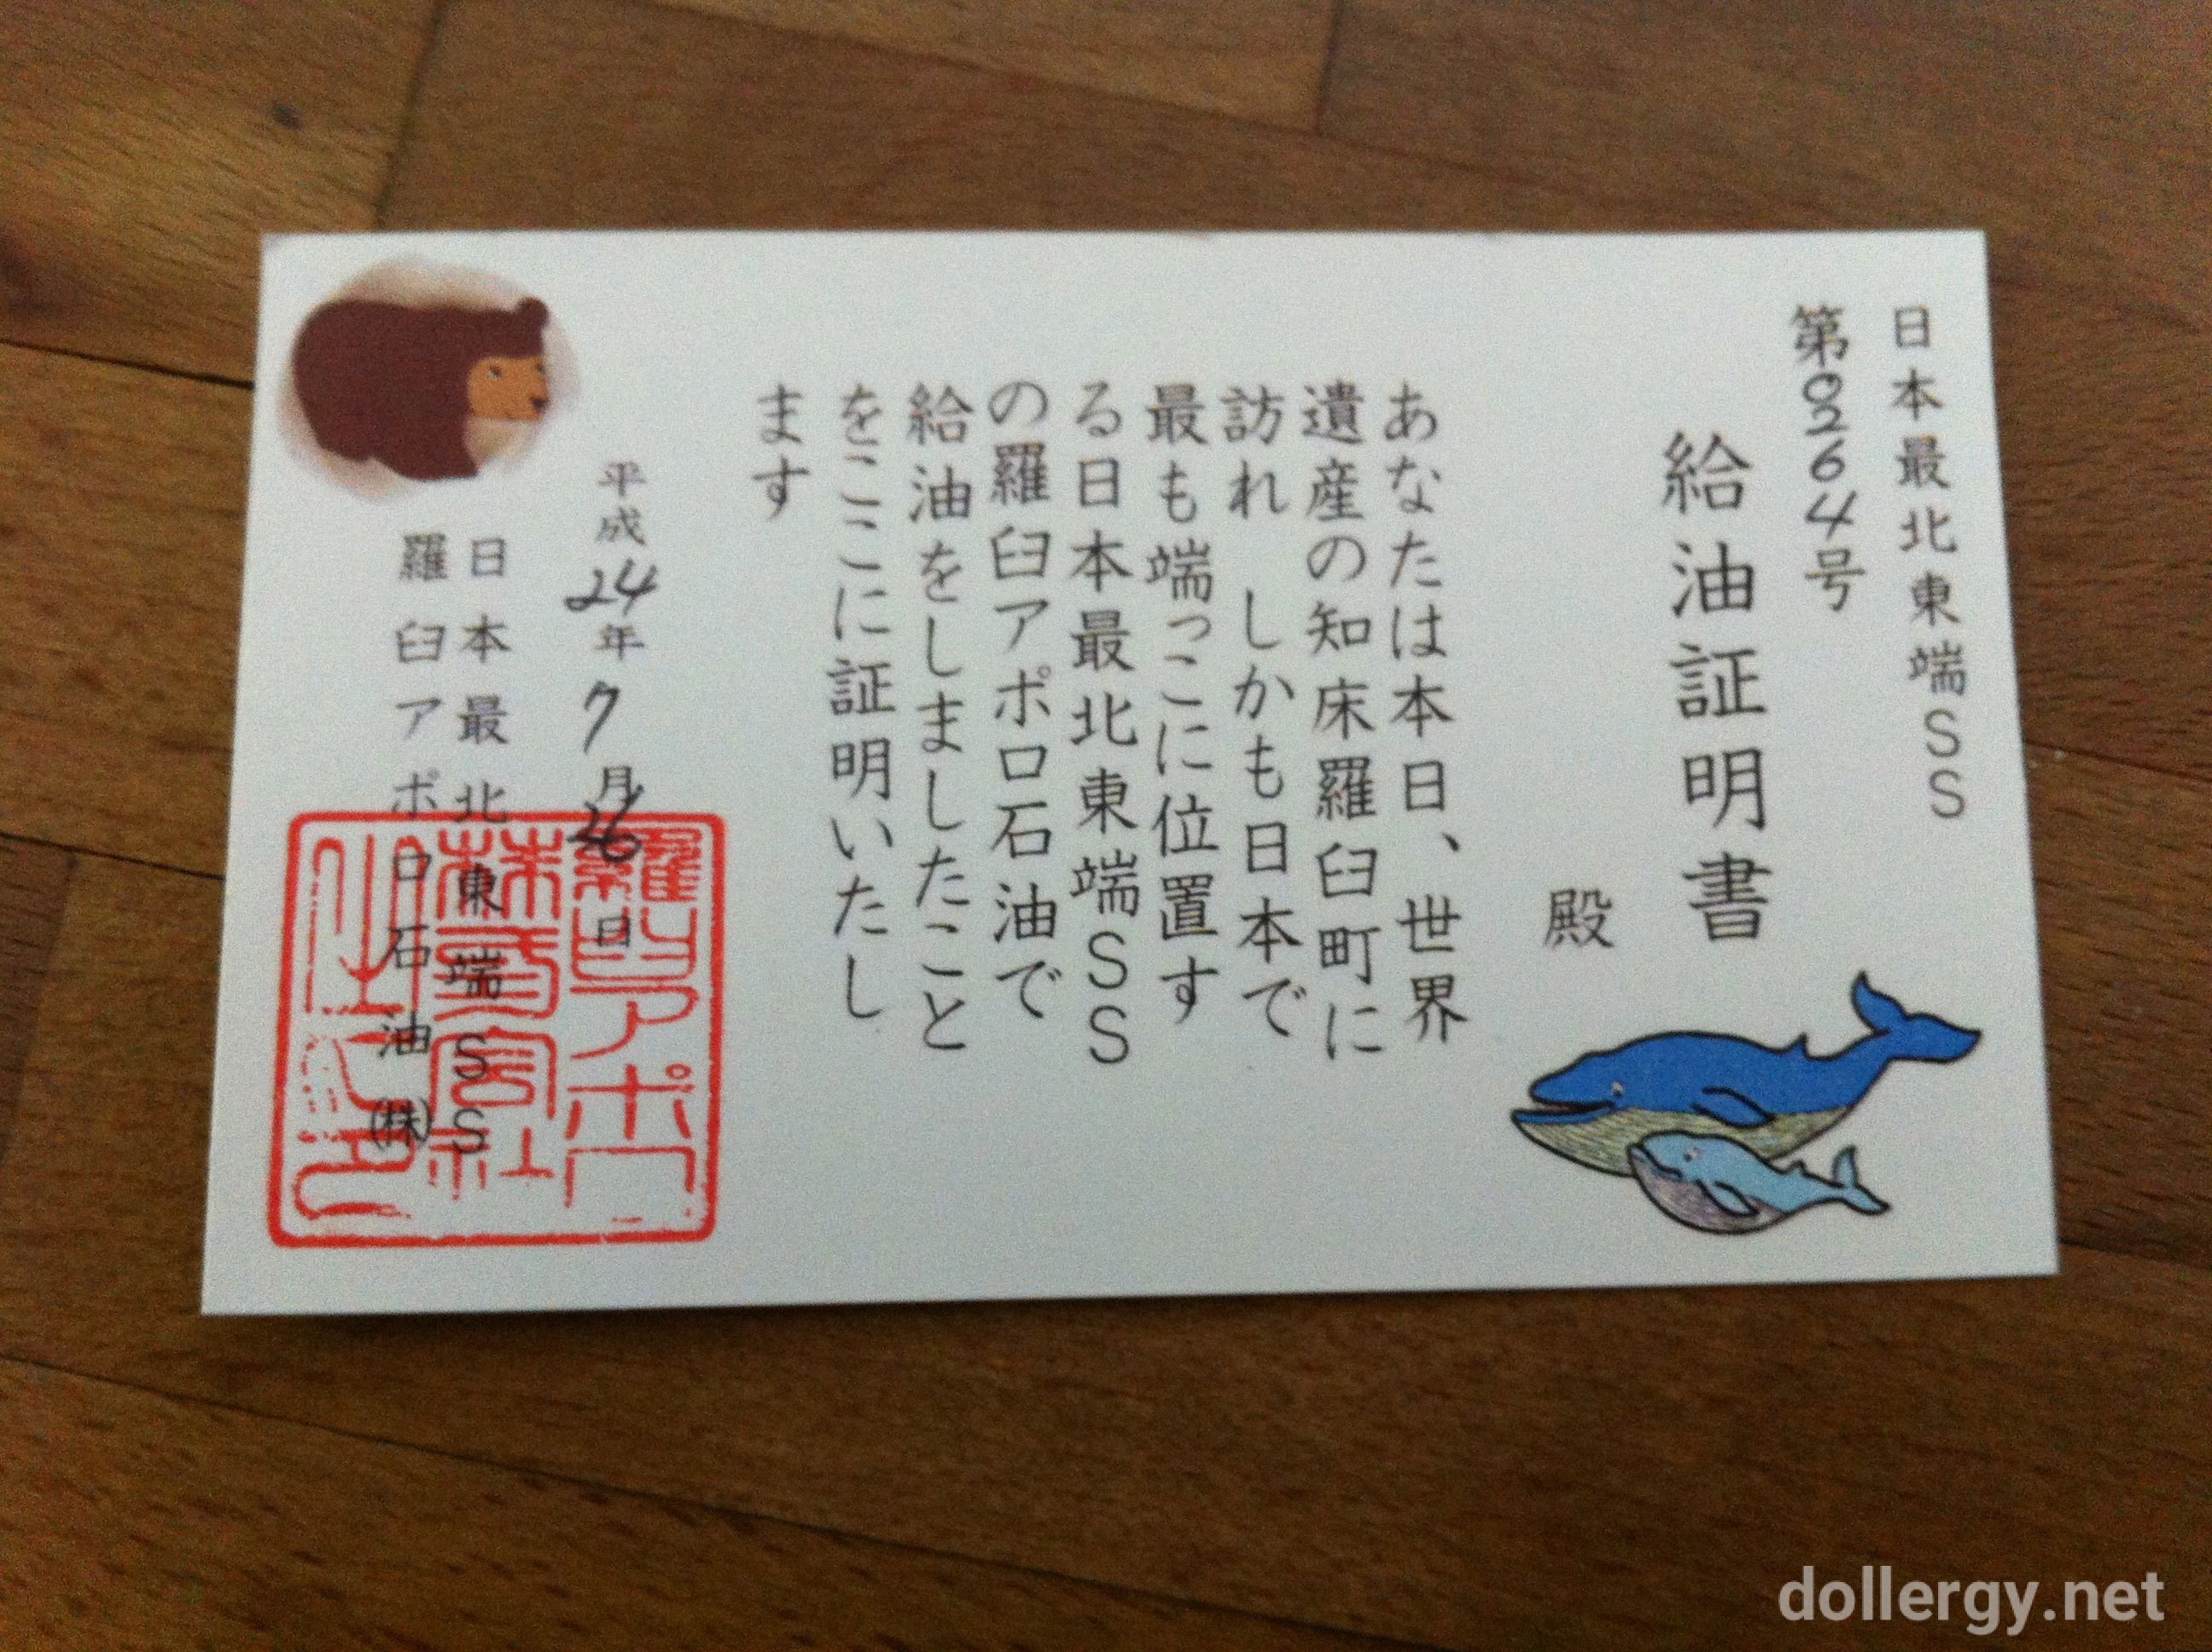 日本最北東端SS
第0264号
給油証明書
殿
あなたは本日、世界
遺産の知床羅臼町に
訪れ しかも日本で
最も端っこに位置す
る日本最北東端SS
の羅臼アポロ石油で
給油をしましたこと
をここに証明いたし
ます
平成24年7月26日
日本最北東端SS
羅臼アポロ石油㈱
羅臼アポロ
株式会社
dollergy.net